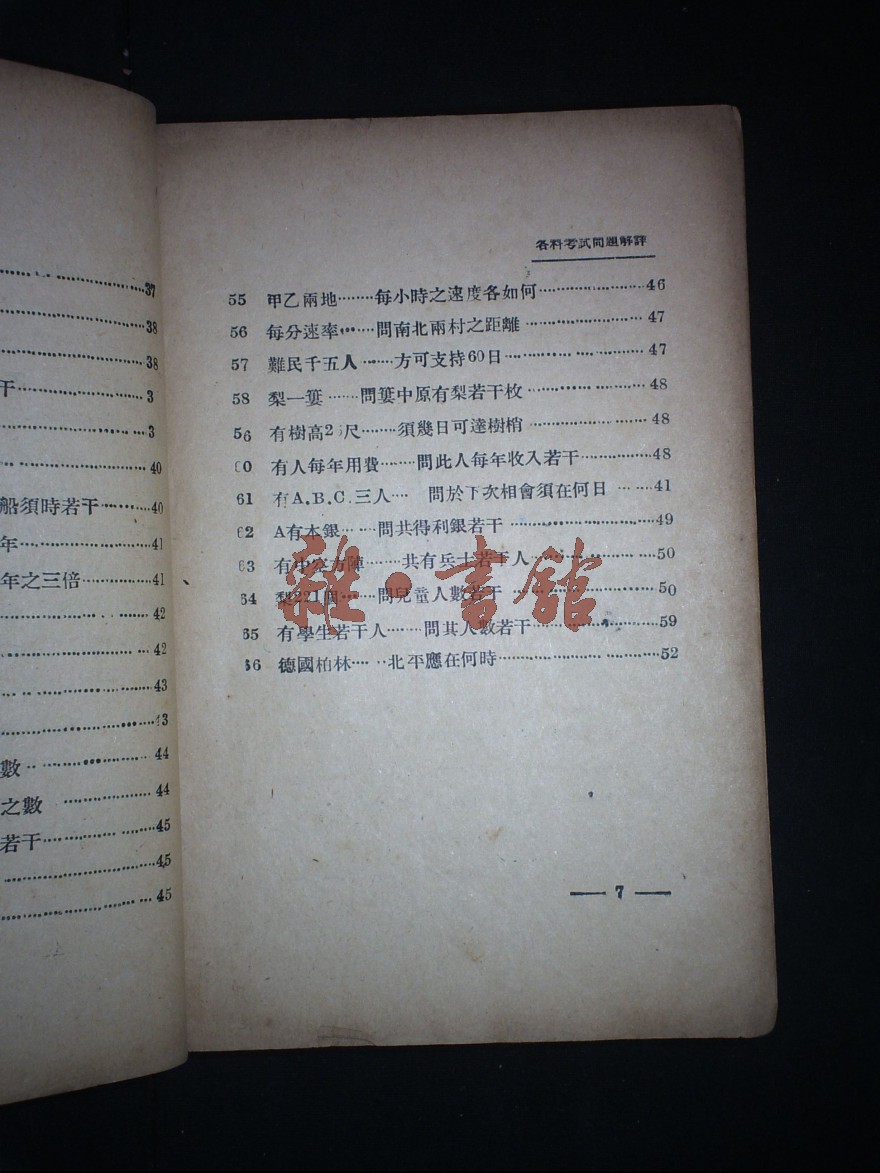 37
38
38
干············3
3
40
船須時若干·······40
年············41
年之三倍·········41
42
42
43
43
數············44
之數 ············44
若干············45
45
45
各科考試問題解詳
55 甲乙兩地·······每小時之速度各如何············46
56 每分速率·······問南北兩村之距離············47
57 難民千五人·······方可支持60日············47
58 梨一簍·······問簍中原有梨若干枚············48
56 有樹高2 尺·······須幾日可達樹梢············48
60 有人每年用費·······問此人每年收入若干·······48
61 有A.B.C.三人···· 問於下次相會須在何日 ······41
62 A有本銀·······問共得利銀若干············49
63 有中空方陣·······共有兵士若干人············50
64 梨221個·······問兒童人數若干············50
65 有學生若干人·······問其人數若干············59
66 德國柏林······北平應在何時············52
雜·書館
7